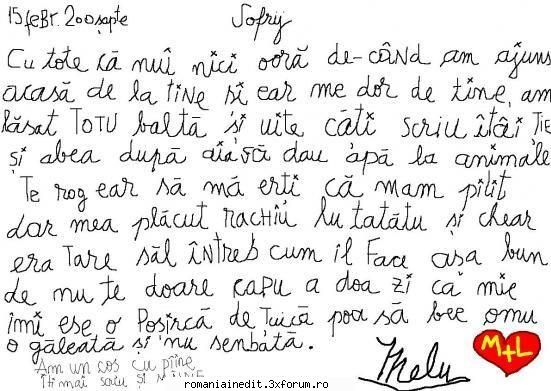 15 feBr. 200șapte
Sofrij
Cu tote că nuî nici ooră de-când am ajuns
acasă de la tine și ear me dor de tine, am
lăsat TOTU baltă și uite câti scriu îtâi ȚIE
și abea după aia să dau apă la animale
Te rog ear să mă erți că mam pilit
dar mea plăcut RACHIU lu tatătu și chear
era Tare săl întreb cum îl Face așa bun
de nu te doare capu a doa zi că mie
îmi ese o Poșircă de Țuică poa să bee omu
o găleată și nu sembată.
Am un cos cu pîine
îți mai saiu și MÎINE
Thelu
M+L
romaniainedit.3xforum.ro